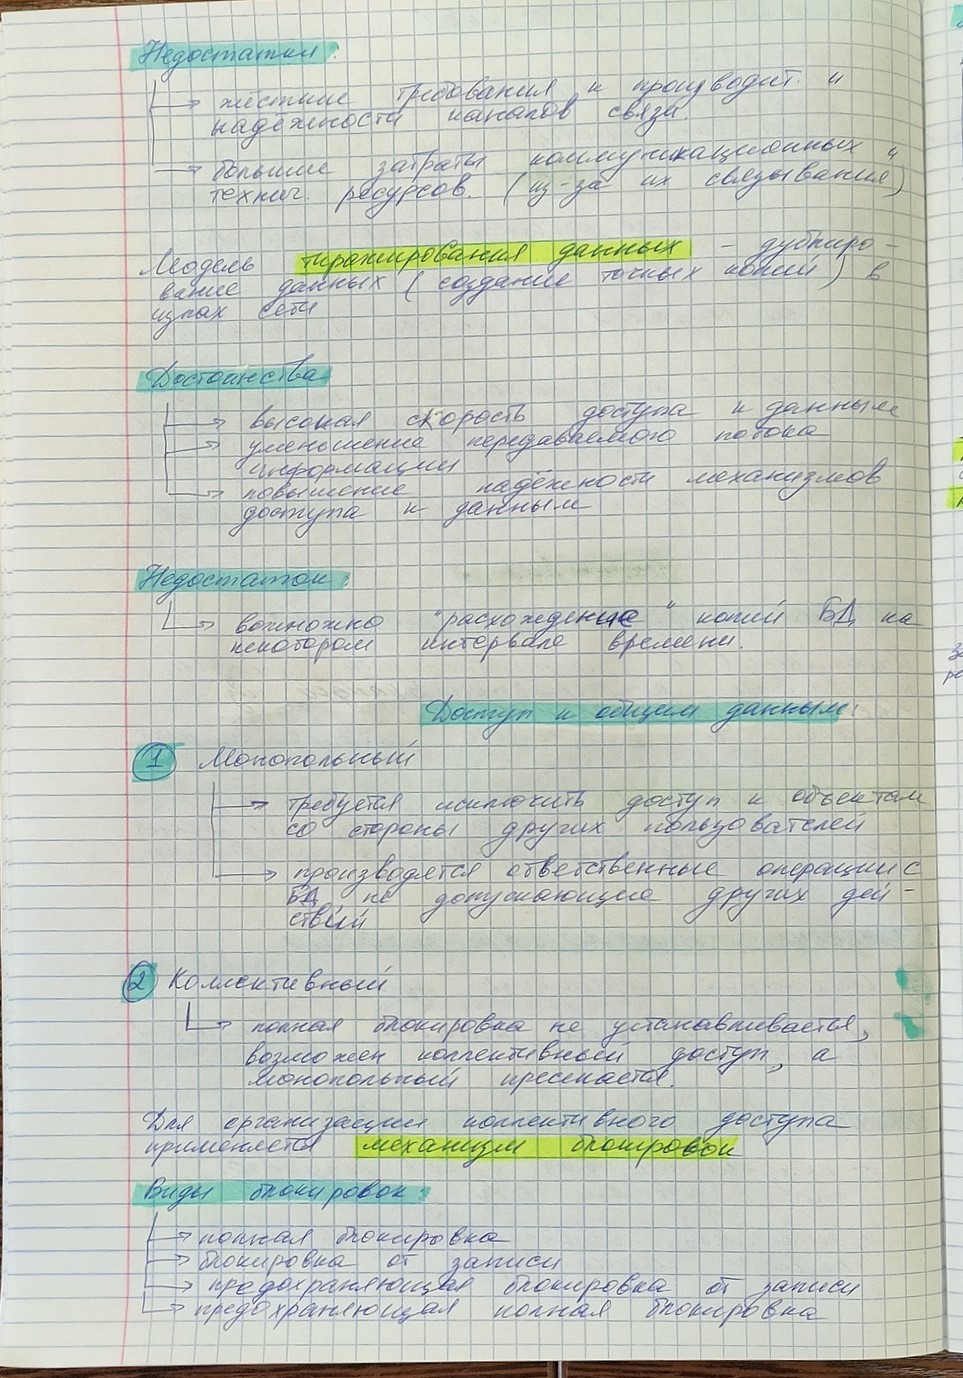 Недостатки:
→ жёсткие требования к производит. и
надёжности каналов связи.
→ большие затраты коммуникационных и
технич. ресурсов. (из-за их связывания)
Модель тиражирования данных - дублиро-
вание данных (создание точных копий) в
узлах сети
Достоинства
→ высокая скорость доступа к данным
→ уменьшение передаваемого потока
информации
→ повышение надёжности механизмов
доступа к данным
Недостаток:
→ возможно "расхождение" копий БД на
некотором интервале времени.
Доступ к общим данным:
1 Монопольный
→ требуется исключить доступ к объектам
со стороны других пользователей
→ производятся ответственные операции с
БД не допускающие других дей-
ствий
2 Коллективный
→ полная блокировка не устанавливается,
возможен коллективный доступ, а
монопольный пресекается.
Для организации коллективного доступа
применяется механизм блокировок
Виды блокировок:
→ полная блокировка
→ блокировка от записи
→ предохраняющая блокировка от записи
→ предохраняющая полная блокировка